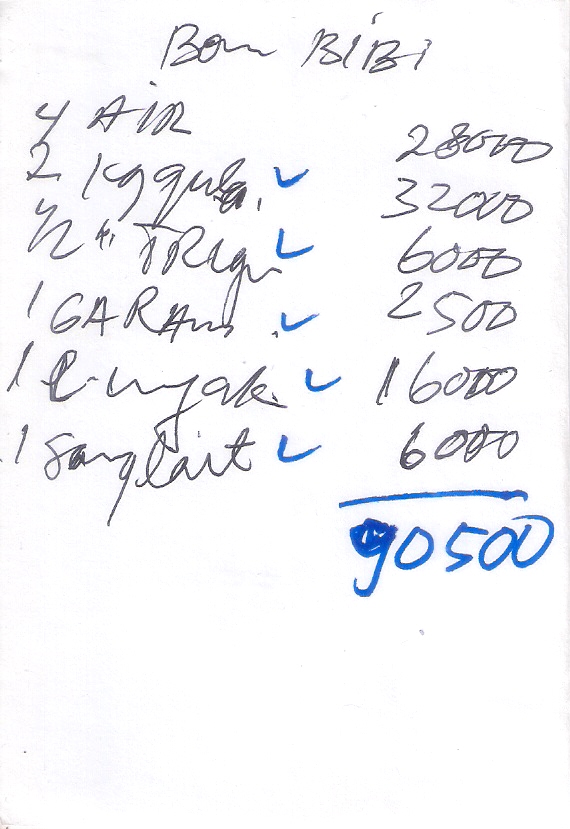 Bon BiBi
4 AIR 28000
2 kg gula. 32000
1/2 " TRIgu 6000
1 GARAm. 2500
1 minyak. 16000
1 Sunglait 6000
90500